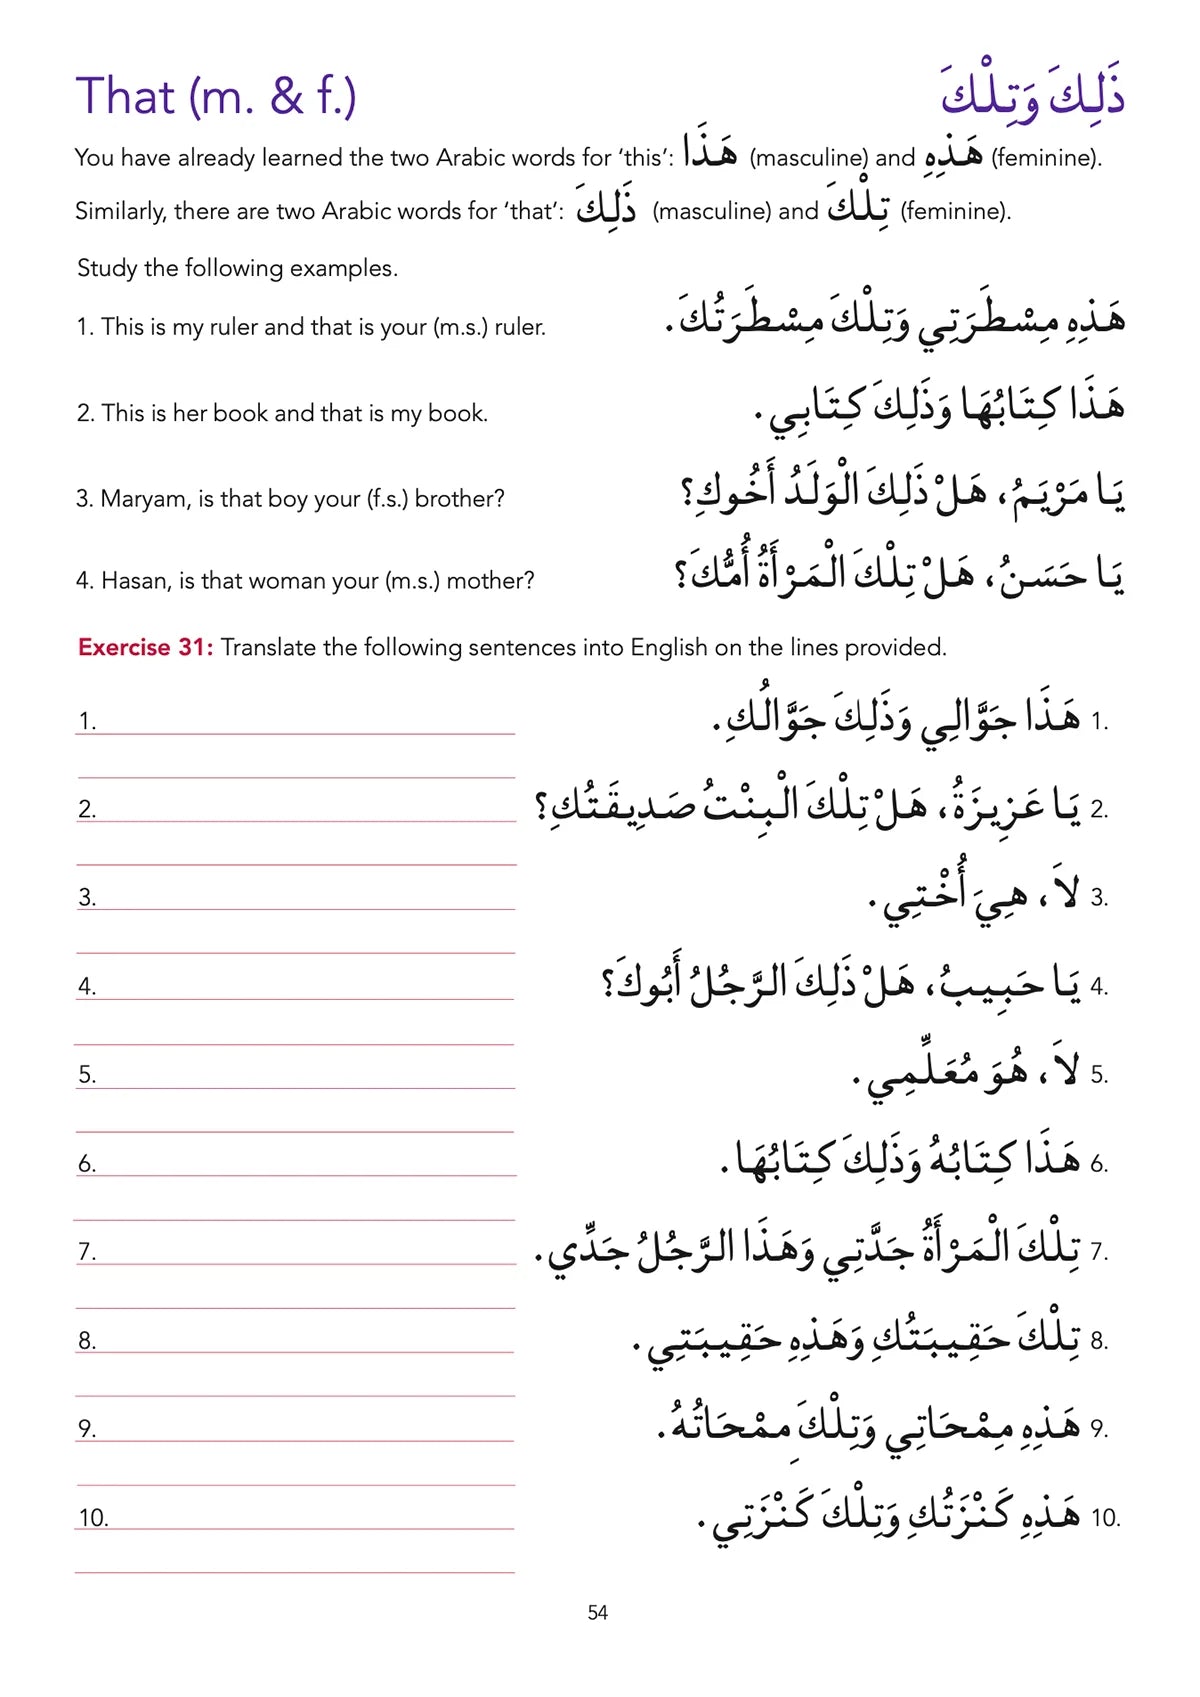 That (m. & f.) ذَلِكَ وَتِلْكَ
You have already learned the two Arabic words for ‘this’: هَذَا (masculine) and هَذِهِ (feminine).
Similarly, there are two Arabic words for ‘that’: ذَلِكَ (masculine) and تِلْكَ (feminine).
Study the following examples.
1. This is my ruler and that is your (m.s.) ruler. هَذِهِ مِسْطَرَتِي وَتِلْكَ مِسْطَرَتُكَ.
2. This is her book and that is my book. هَذَا كِتَابُهَا وَذَلِكَ كِتَابِي.
3. Maryam, is that boy your (f.s.) brother? يَا مَرْيَمُ، هَلْ ذَلِكَ الْوَلَدُ أَخُوكِ؟
4. Hasan, is that woman your (m.s.) mother? يَا حَسَنُ، هَلْ تِلْكَ الْمَرْأَةُ أُمُّكَ؟
Exercise 31: Translate the following sentences into English on the lines provided.
1. 1. هَذَا جَوَّالِي وَذَلِكَ جَوَّالُكِ.
2. 2. يَا عَزِيزَةُ، هَلْ تِلْكَ الْبِنْتُ صَدِيقَتُكِ؟
3. 3. لاَ، هِيَ أُخْتِي.
4. 4. يَا حَبِيبُ، هَلْ ذَلِكَ الرَّجُلُ أَبُوكَ؟
5. 5. لاَ، هُوَ مُعَلِّمِي.
6. 6. هَذَا كِتَابُهُ وَذَلِكَ كِتَابُهَا.
7. 7. تِلْكَ الْمَرْأَةُ جَدَّتِي وَهَذَا الرَّجُلُ جَدِّي.
8. 8. تِلْكَ حَقِيبَتُكِ وَهَذِهِ حَقِيبَتِي.
9. 9. هَذِهِ مِمْحَاتِي وَتِلْكَ مِمْحَاتُهُ.
10. 10. هَذِهِ كَنْزَتُكِ وَتِلْكَ كَنْزَتِي.
54